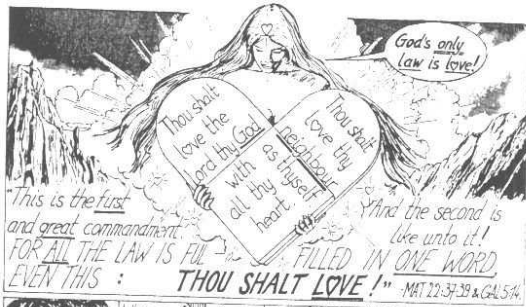 God's only
law is love!
Thou shalt
love the
Lord thy God
with
all thy
heart.
Thou shalt
love thy
neighbour
as thyself
"This is the first
and great commandment.
And the second is
like unto it!
FOR ALL THE LAW IS FUL-
FILLED IN ONE WORD,
EVEN THIS :
THOU SHALT LOVE!"
-MAT 22:37-39 & GAL 5:14